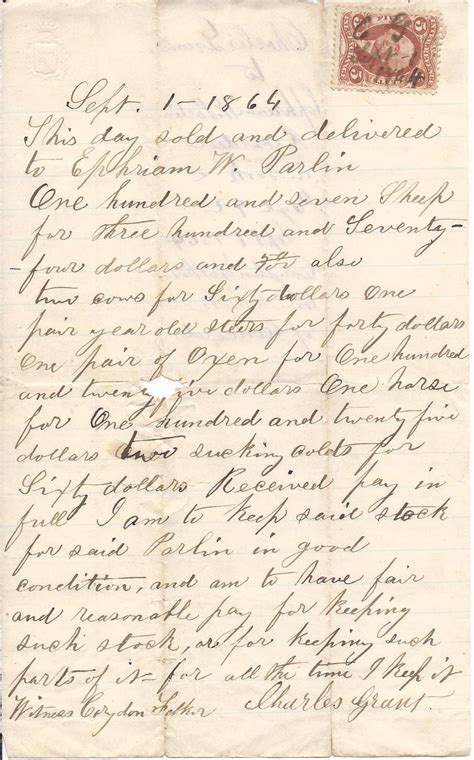 Sept. 1 - 1864
This day sold and delivered
to Ephriam W. Parlin
One hundred and seven Sheep
for three hundred and Seventy-
-four dollars and also
two cows for Sixty dollars One
pair year old steers for forty dollars
One pair of Oxen for One hundred
and twenty five dollars One horse
for One hundred and twenty five
dollars two sucking colds for
Sixty dollars Received pay in
full I am to keep said stock
for said Parlin in good
condition, and am to have fair
and reasonable pay for keeping
such stock, or for keeping such
parts of it for all the time I keep it
Witness Corydon Felker Charles Grant